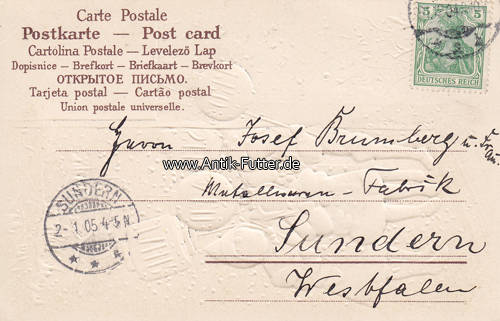 Carte Postale
Postkarte — Post card
Cartolina Postale – Levelező Lap
Dopisnice – Brefkort – Briefkaart – Brevkort
ОТКРЫТОЕ ПИСЬМО.
Tarjeta postal – Cartão postal
Union postale universelle.
5 5
DEUTSCHES REICH
Herrn Josef Brumberg u. Fr.
www.Antik-Futter.de
Metallwaren-Fabrik
SUNDERN
2-1 05 4-5N
Sundern
Westfalen